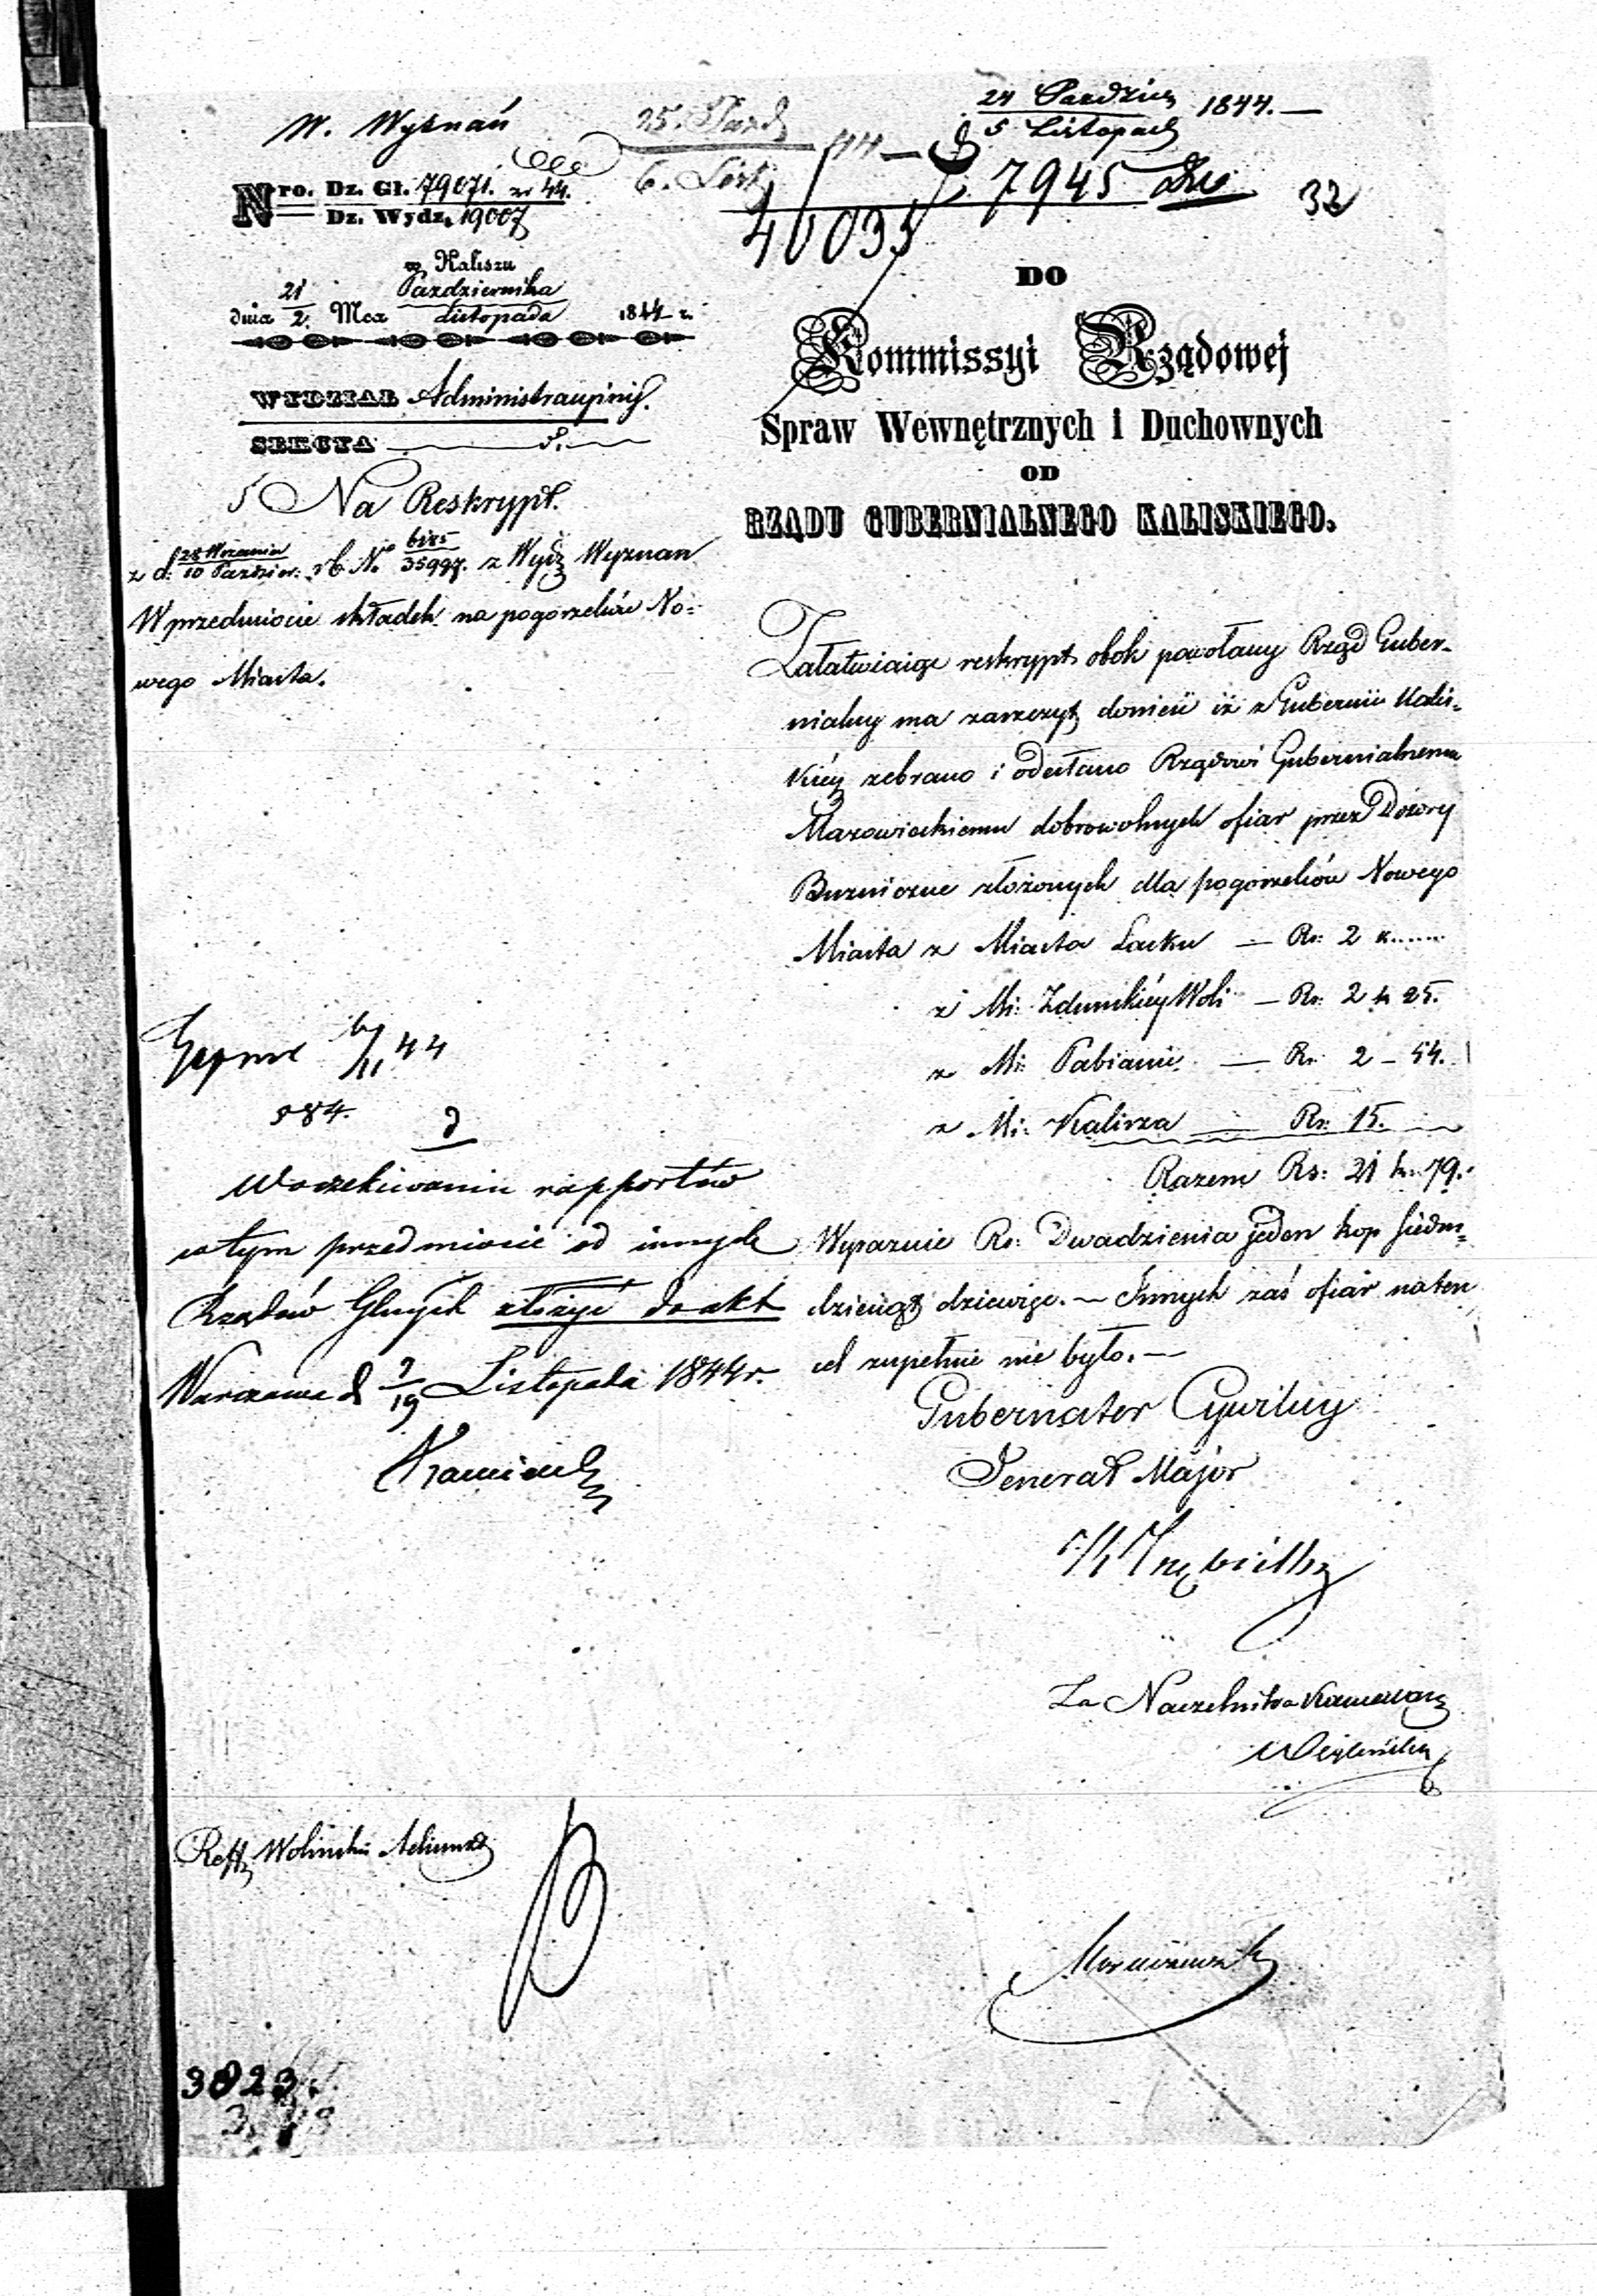 W. Wyznań
25. Paźd
6. List. 44
24 Paździer
5 Listopad 1844.—
7945
40035
32
Nro. Dz. Gł. 79071. zr 44.
Dz. Wydz. 19007
w Kaliszu
dnia 21/2 Mca Pazdziernika/Listopada 1844 r.
WYDZIAŁ Administracyiny.
SEKCYA
Na Reskrypt.
z d. 28 Wrzesnia/10 Pazdzier: rb. No 6185/35997. z Wydz Wyznan
W przedmiocie składek na pogorzelców No=
wego Miasta.
DO
Kommissyi Rządowej
Spraw Wewnętrznych i Duchownych
OD
RZĄDU GUBERNIALNEGO KALISKIEGO.
Załatwiaiąc reskrypt obok powołany Rząd Guber-
nialny ma zaszczyt donieść iż z Gubernii Kalis-
kiéy zebrano i odesłano Rządowi Gubernialnemu
Mazowieckiemu dobrowolnych ofiar przez Dozory
Bużniczne złożonych dla pogorzelców Nowego
Miasta z Miasta Łasku — Rs: 2 k......
z Mi: Zdunskiéy Woli — Rs: 2 k 25.
z Mi: Pabianic — Rs: 2 – 54.
z Mi: Kalisza — Rs: 15.
Razem Rs: 21 k. 79.
Wyraznie Rs: Dwadzieścia jeden kop siedm=
dziesiąt dziewięc. — Innych zaś ofiar na ten
cel zupełnie nie było. —
Gubernator Cywilny
Generał Major
Za Naczelnika Kancellaryi
6/11 44
884.
W oczekiwaniu rapportów
w tym przedmiocie od innych
Rządów Glnych złożyć do akt
Warszawa d 7/19 Listopada 1844 r.
Reff. Woliński Adiunkt
3823